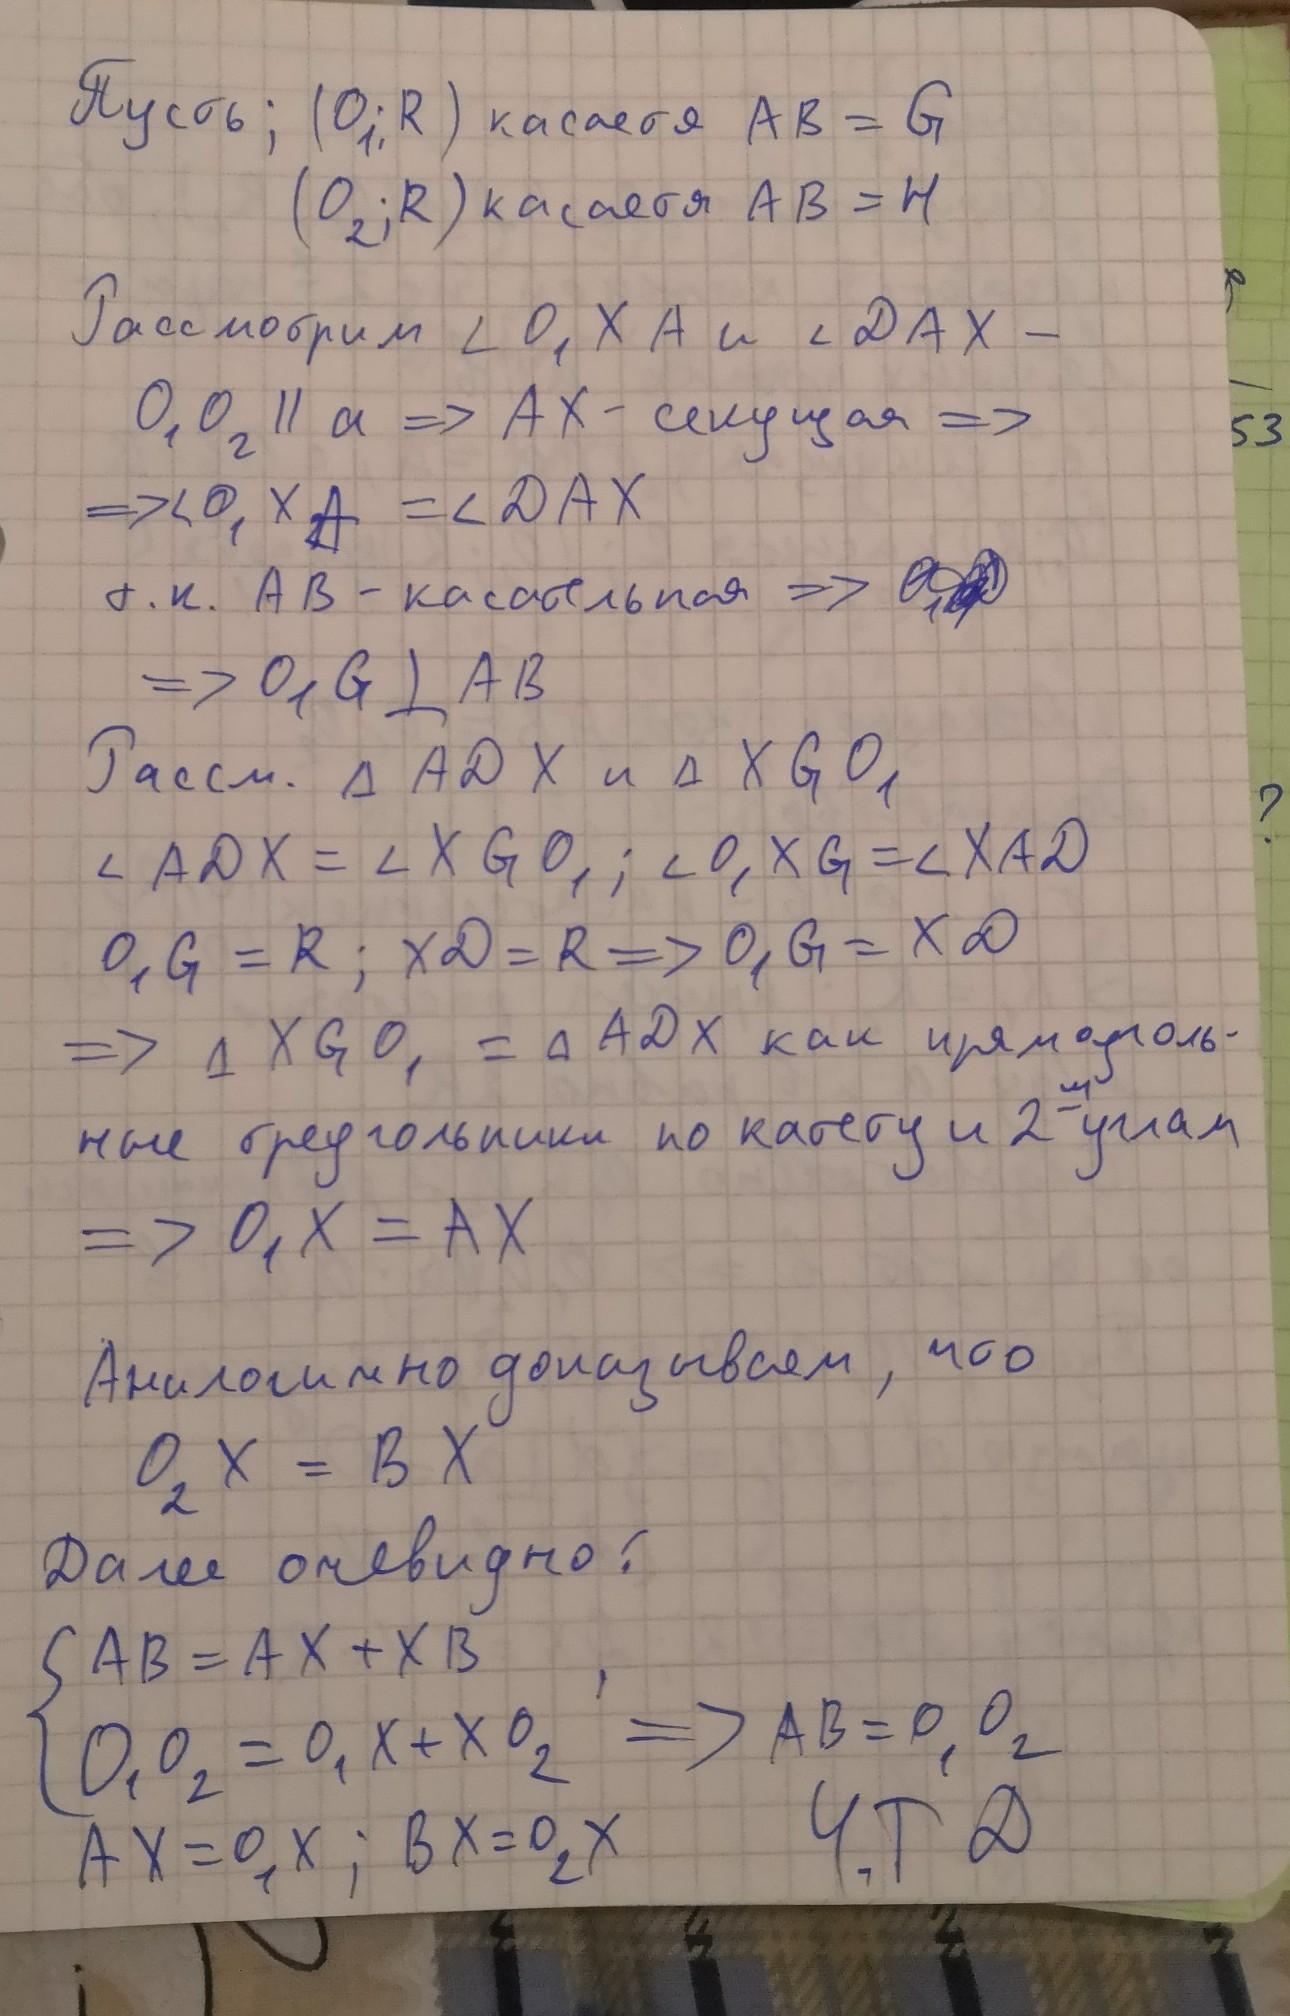 Пусть; (O₁;R) касается AB = G
(O₂;R) касается AB = H
Рассмотрим ∠O₁XA и ∠DAX –
O₁O₂ || a => AX – секущая =>
=> ∠O₁XA = ∠DAX
т.к. AB – касательная =>
=> O₁G ⊥ AB
Рассм. △ ADX и △ XGO₁
∠ADX = ∠XGO₁; ∠O₁XG = ∠XAD
O₁G = R; XD = R => O₁G = XD
=> △ XGO₁ = △ ADX как прямоуголь-
ные треугольники по катету и 2-м углам
=> O₁X = AX
Аналогично доказываем, что
O₂X = BX
Далее очевидно:
{ AB = AX + XB ,
O₁O₂ = O₁X + XO₂ => AB = O₁O₂
AX = O₁X; BX = O₂X Ч.Т Д
53
?